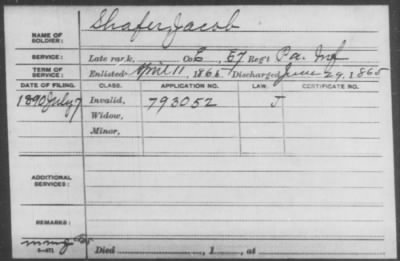 NAME OF SOLDIER: Shafer, Jacob
SERVICE: Late rank, Co. E, 57 Reg't Pa. Inf
TERM OF SERVICE: Enlisted April 11, 1865 Discharged June 29, 1865
DATE OF FILING. CLASS. APPLICATION NO. LAW. CERTIFICATE NO.
1890 July 7 Invalid, 793052 J
Widow,
Minor,
ADDITIONAL SERVICES:
REMARKS:
Died , 1 , at